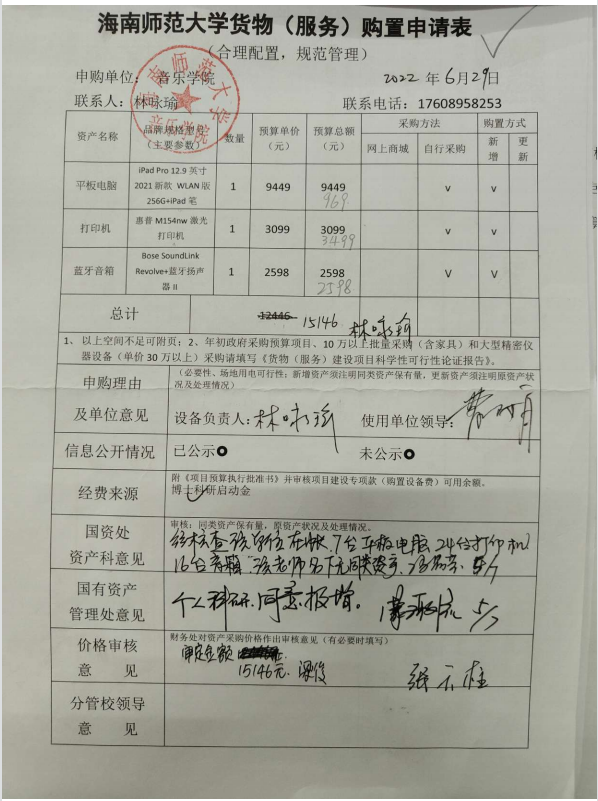 海南师范大学货物（服务）购置申请表
（合理配置，规范管理）
申购单位： 音乐学院 2022 年 6月 29日
联系人：林咏瑜 联系电话：17608958253
资产名称 品牌规格型号（主要参数） 数量 预算单价（元） 预算总额（元） 采购方法 购置方式
网上商城 自行采购 新增 更新
平板电脑 iPad Pro 12.9 英寸 2021 新款 WLAN 版 256G+iPad 笔 1 9449 9449 v v
969
打印机 惠普 M154nw 激光打印机 1 3099 3099 v v
3499
蓝牙音箱 Bose SoundLink Revolve+蓝牙扬声器 II 1 2598 2598 V V
2598
总计 12446 15146 林咏瑜
1、以上空间不足可附页；2、年初政府采购预算项目、10 万以上批量采购（含家具）和大型精密仪
器设备（单价 30 万以上）采购请填写《货物（服务）建设项目科学性可行性论证报告》。
申购理由
及单位意见
（必要性、场地用电可行性；新增资产须注明同类资产保有量，更新资产须注明原资产状
况及处理情况）
设备负责人：林咏瑜 使用单位领导：
信息公开情况 已公示 未公示
经费来源
附《项目预算执行批准书》并审核项目建设专项款（购置设备费）可用余额。
博士科研启动金
国资处
资产科意见
审核：同类资产保有量，原资产状况及处理情况。
经核查该学院在账 7台平板电脑 24台打印机
16台音箱 该老师名下无同类资产 5/7
国有资产
管理处意见
个人科研，同意报增。 5/7
价格审核
意 见
财务处对资产采购价格作出审核意见（有必要时填写）
审定金额
15146元
分管校领导
意 见
海南师范大学
音乐学院